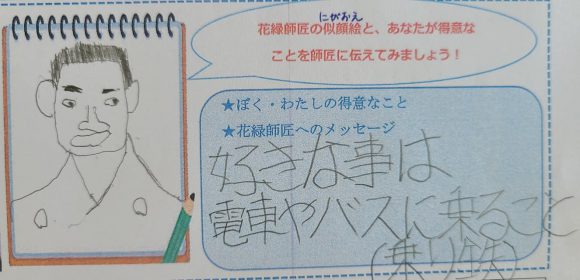 にがおえ
花緑師匠の似顔絵と、あなたが得意な
ことを師匠に伝えてみましょう！
★ぼく・わたしの得意なこと
★花緑師匠へのメッセージ
好きな事は
電車やバスに乗ること
(乗り鉄)